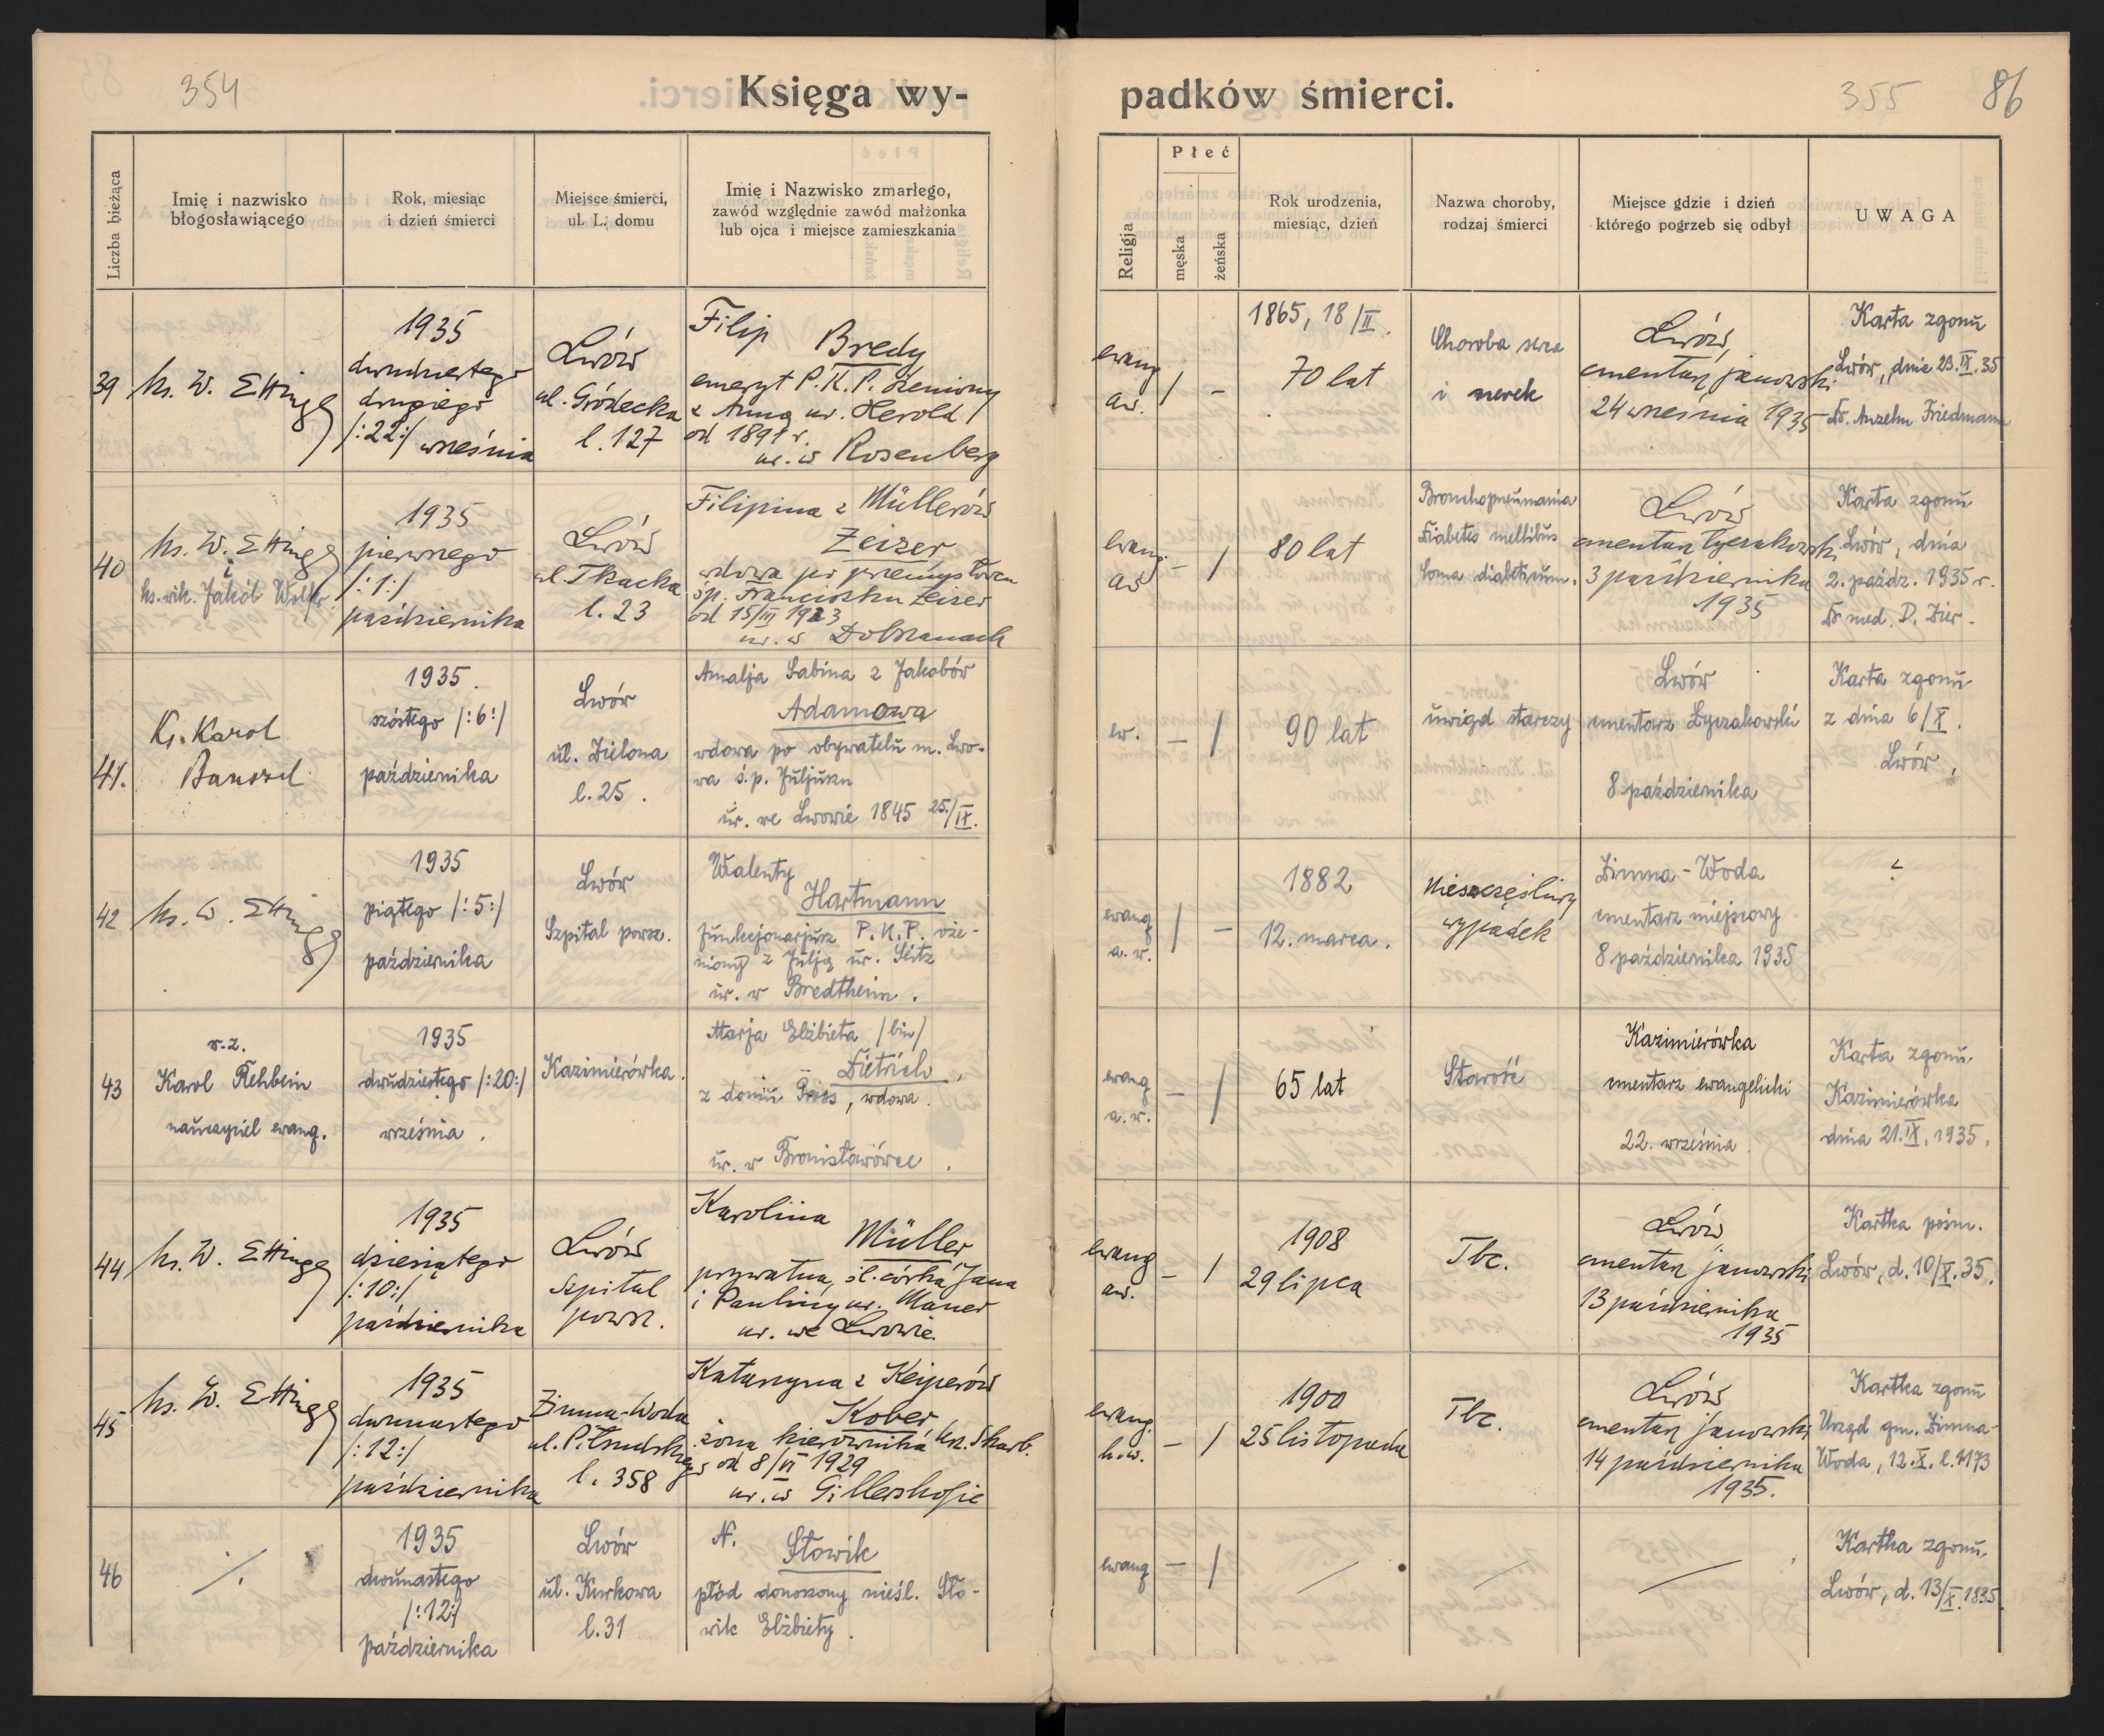 354
Księga wy-
padków śmierci.
355
86
Liczba bieżąca
Imię i nazwisko
błogosławiącego
Rok, miesiąc
i dzień śmierci
Miejsce śmierci,
ul. L. domu
Imię i Nazwisko zmarłego,
zawód względnie zawód małżonka
lub ojca i miejsce zamieszkania
Religja
Płeć
męska
żeńska
Rok urodzenia,
miesiąc, dzień
Nazwa choroby,
rodzaj śmierci
Miejsce gdzie i dzień
którego pogrzeb się odbył
UWAGA
39
ks. W. Ettinger
1935
dwudziestego
drugiego
/:22:/ września
Lwów
ul. Gródecka
l. 127
Filip
Bredy
emeryt P.K.P. żeniony
z Anną ur. Herold
od 1891 r.
ur. w Rosenberg
ewang
aw.
/
-
1865, 18/II.
70 lat
Choroba serca
i nerek
Lwów,
cmentarz janowski
24 września 1935
Karta zgonu
Lwów, dnia 23.IX.35
Dr. Anzelm Friedmann
40
ks. W. Ettinger
i
ks. wik. Jakób Wolfer
1935
pierwszego
/:1:/
października
Lwów
ul. Tkacka
l. 23
Filipina z Müllerów
Zeizer
wdowa po przemysłowcu
śp. Franciszku Zeizer
od 15/III 1923
ur. w Dobrzanach
ewang.
aw
-
/
80 lat
Bronchopneumania
Diabetes mellibus
Coma diabeticum.
Lwów
cmentarz łyczakowski
3 października
1935
Karta zgonu
Lwów, dnia
2. paźdz. 1935 r.
Dr med. D. Zier.
41.
Ks. Karol
Banszel
1935.
szóstego /:6:/
października
Lwów
ul. Zielona
l. 25.
Amalja Sabina z Jakobów
Adamowa
wdowa po obywatelu m. Lwo-
wa ś.p. Juljuszu
ur. we Lwowie 1845 25./IX.
ew.
-
/
90 lat
uwiąd starczy
Lwów
cmentarz Łyczakowski
8 października
Karta zgonu
z dnia 6/X.
Lwów,
42
ks. W. Ettinger
1935
piątego /:5:/
października
Lwów
Szpital powsz.
Walenty
Hartmann
funkcjonarjusz P.K.P. oże-
niony z Julją ur. Seitz
ur. w Bredtheim.
ewang
a.w.
/
-
1882
12. marca.
Nieszczęśliwy
wypadek
Zimna-Woda
cmentarz miejscowy
8 października 1935
?
43
w.z.
Karol Rehbein
nauczyciel ewang.
1935
dwudziestego /:20:/
września.
Kazimierówka.
Marja Elżbieta /bin/
Dietrich,
z domu Press, wdowa.
ur. w Bronisławówce.
ewang
a.w.
-
/
65 lat
Starość
Kazimierówka
cmentarz ewangelicki
22. września.
Karta zgonu
Kazimierówka
dnia 21.IX.1935.
44
ks. W. Ettinger
1935
dziesiątego
/:10:/
października
Lwów
Szpital
powsz.
Karolina
Müller
prywatna, śl. córka Jana
i Pauliny ur. Maner
ur. we Lwowie.
ewang
aw.
-
/
1908
29 lipca
Tbc.
Lwów
cmentarz janowski
13 października
1935
Kartka pośm.
Lwów, d. 10/X.35.
45
ks. W. Ettinger
1935
dwunastego
/:12:/
października
Zimna-Woda
ul. Piłsudskiego
l. 358
Katarzyna z Keiperów
Kober
żona kierownika Urz. Skarb.
od 8/VI 1929
ur. w Gillershofie
ewang.
h.w.
-
/
1900
25 listopada
Tbc.
Lwów
cmentarz janowski
14 października
1935.
Kartka zgonu
Urząd gm. Zimna-
Woda, 12.X. l. 4173
46
/.
1935
dwunastego
/:12:/
października
Lwów
ul. Kurkowa
l. 31
N.
Słowik
płód donoszony nieśl. Sło-
wik Elżbiety.
ewang
-
/
Kartka zgonu
Lwów, d. 13/X.1935.